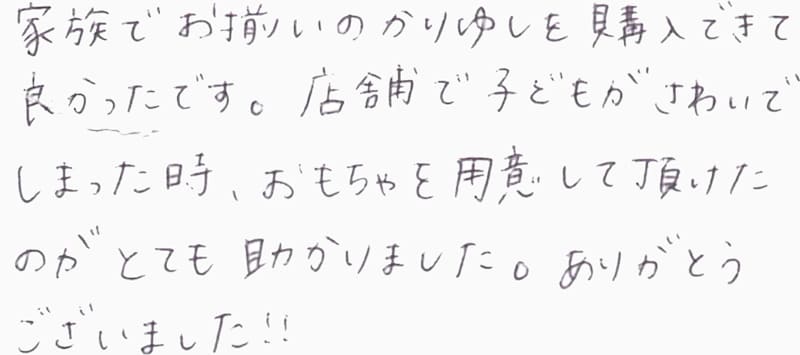 家族でお揃いのかりゆしを購入できて
良かったです。店舗で子どもがさわいで
しまった時、おもちゃを用意して頂けた
のがとても助かりました。ありがとう
ございました!!